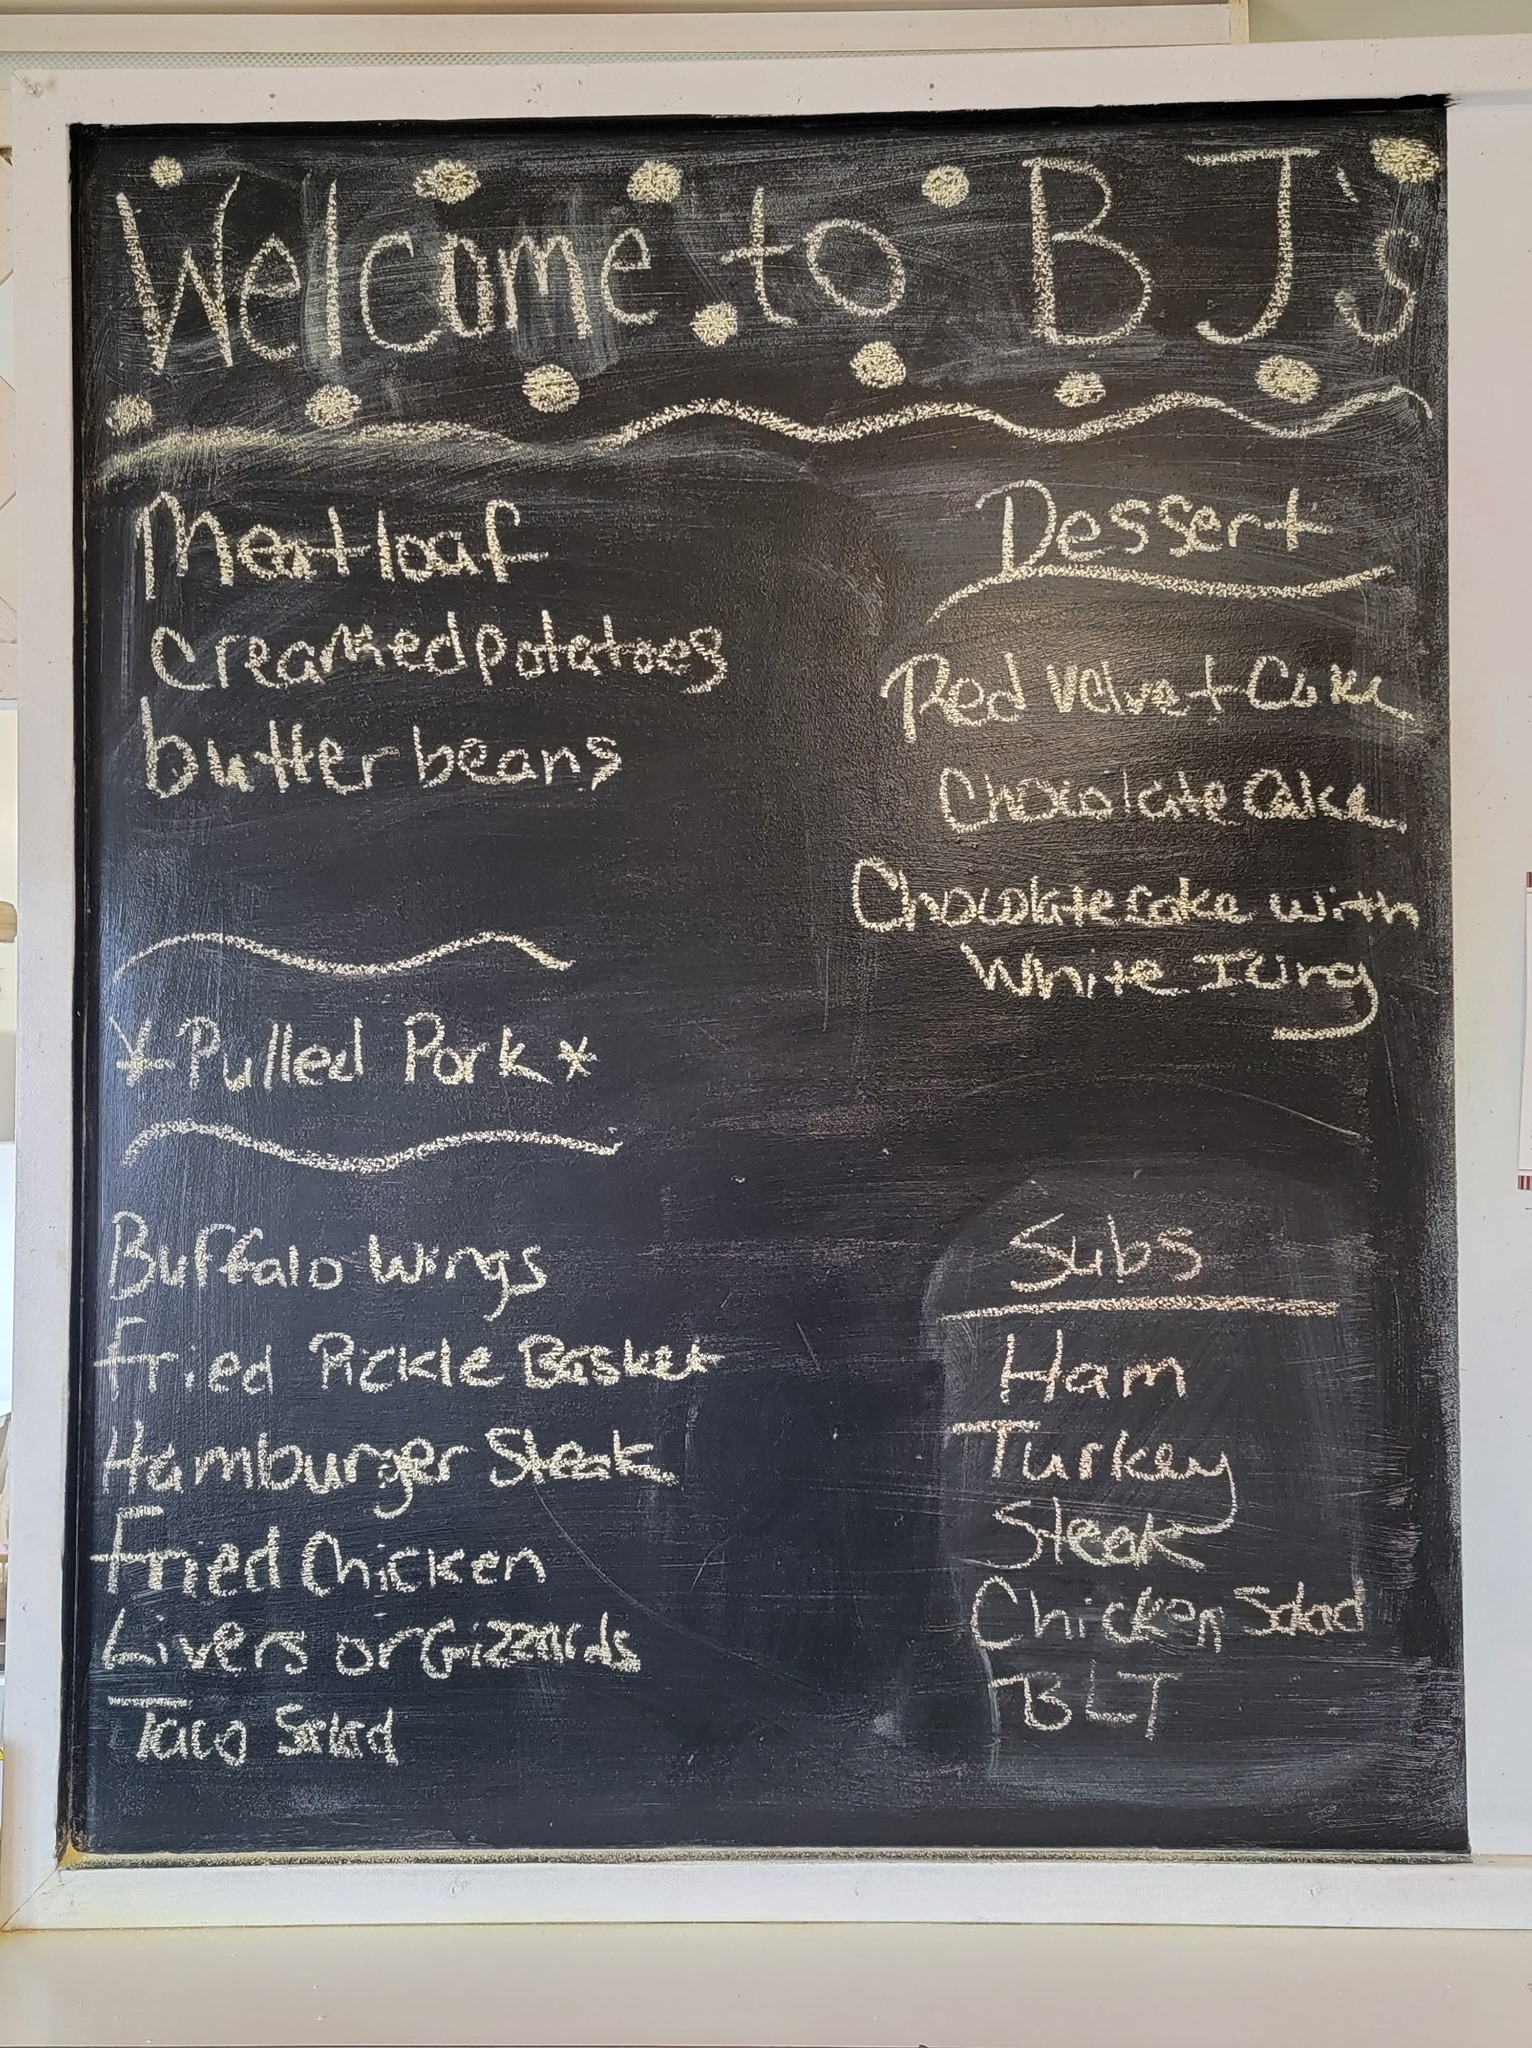 Welcome to BJ's
Meatloaf
Creamed potatoes
butter beans
*Pulled Pork*
Buffalo Wings
Fried Pickle Basket
Hamburger Steak
Fried Chicken
Livers or Gizzards
Taco Salad
Dessert
Red Velvet Cake
Chocolate Cake
Chocolate cake with
White Icing
Subs
Ham
Turkey
Steak
Chicken Salad
BLT